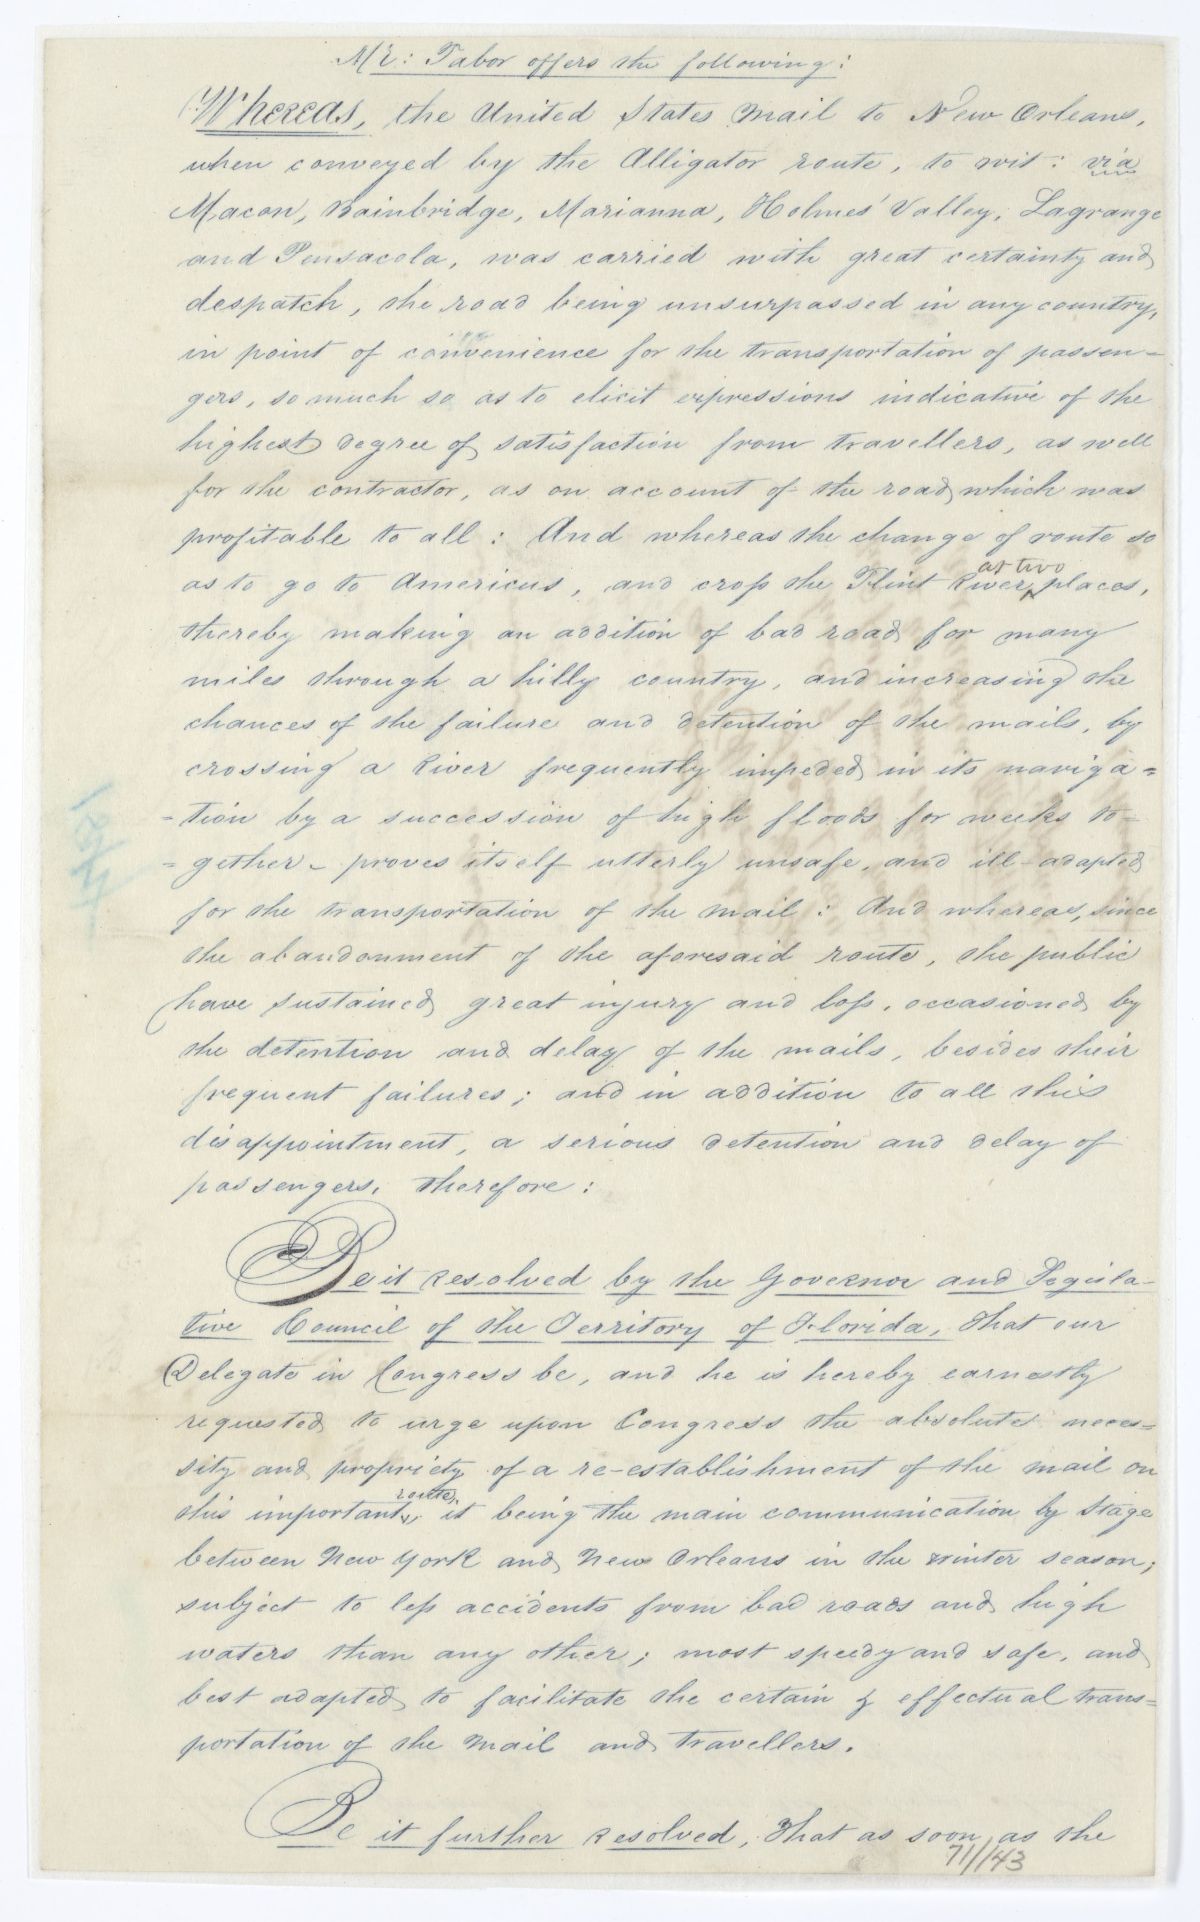 Mr: Tabor offers the following:
Whereas, the United States Mail to New Orleans,
when conveyed by the Alligator route, to wit: via
Macon, Bainbridge, Marianna, Holmes' Valley, Lagrange
and Pensacola, was carried with great certainty and
despatch, the road being unsurpassed in any country,
in point of convenience for the transportation of passen=
gers, so much so as to elicit expressions indicative of the
highest degree of satisfaction from travellers, as well
for the contractor, as on account of the road which was
profitable to all: And whereas the change of route so
as to go to Americus, and cross the Flint River at two places,
thereby making an addition of bad road for many
miles through a hilly country, and increasing the
chances of the failure and detention of the mails, by
crossing a River frequently impeded in its naviga=
=tion by a succession of high floods for weeks to=
=gether - proves itself utterly unsafe, and ill-adapted
for the transportation of the mail: And whereas, since
the abandonment of the aforesaid route, the public
have sustained great injury and loss, occasioned by
the detention and delay of the mails, besides their
frequent failures; and in addition to all this
disappointment, a serious detention and delay of
passengers, therefore:
Be it resolved by the Governor and Legisla-
tive Council of the Territory of Florida, That our
Delegate in Congress be, and he is hereby earnestly
requested to urge upon Congress the absolute neces=
sity and propriety of a re-establishment of the mail on
this important route, it being the main communication by Stage
between New York and New Orleans in the winter season;
subject to less accidents from bad roads and high
waters than any other; most speedy and safe, and
best adapted to facilitate the certain & effectual trans=
portation of the mail and travellers.
Be it further resolved, That as soon as the
71/143